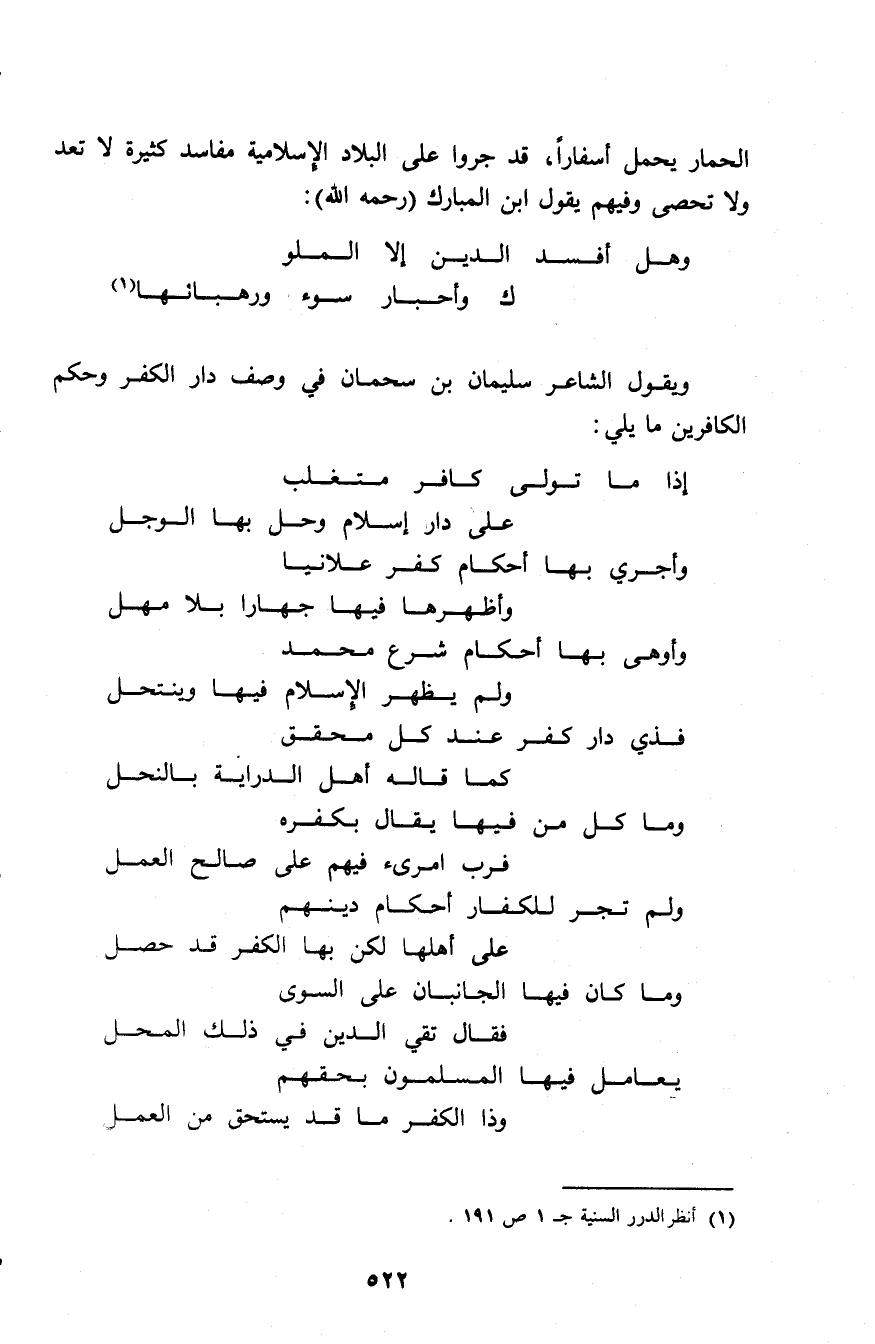 الحمار يحمل أسفاراً، قد جروا على البلاد الإسلامية مفاسد كثيرة لا تعد
ولا تحصى وفيهم يقول ابن المبارك (رحمه الله):
وهل أفسد الدين إلا الملو
ك وأحبار سوء ورهبانها(١)
ويقول الشاعر سليمان بن سحمان في وصف دار الكفر وحكم
الكافرين ما يلي:
إذا ما تولى كافر متغلب
على دار إسلام وحل بها الوجل
وأجري بها أحكام كفر علانيا
وأظهرها فيها جهارا بلا مهل
وأوهى بها أحكام شرع محمد
ولم يظهر الإسلام فيها وينتحل
فذي دار كفر عند كل محقق
كما قاله أهل الدراية بالنحل
وما كل من فيها يقال بكفره
فرب امرىء فيهم على صالح العمل
ولم تجر للكفار أحكام دينهم
على أهلها لكن بها الكفر قد حصل
وما كان فيها الجانبان على السوى
فقال تقي الدين في ذلك المحل
يعامل فيها المسلمون بحقهم
وذا الكفر ما قد يستحق من العمل
(١) أنظر الدرر السنية جـ ١ ص ١٩١ .
٥٢٢